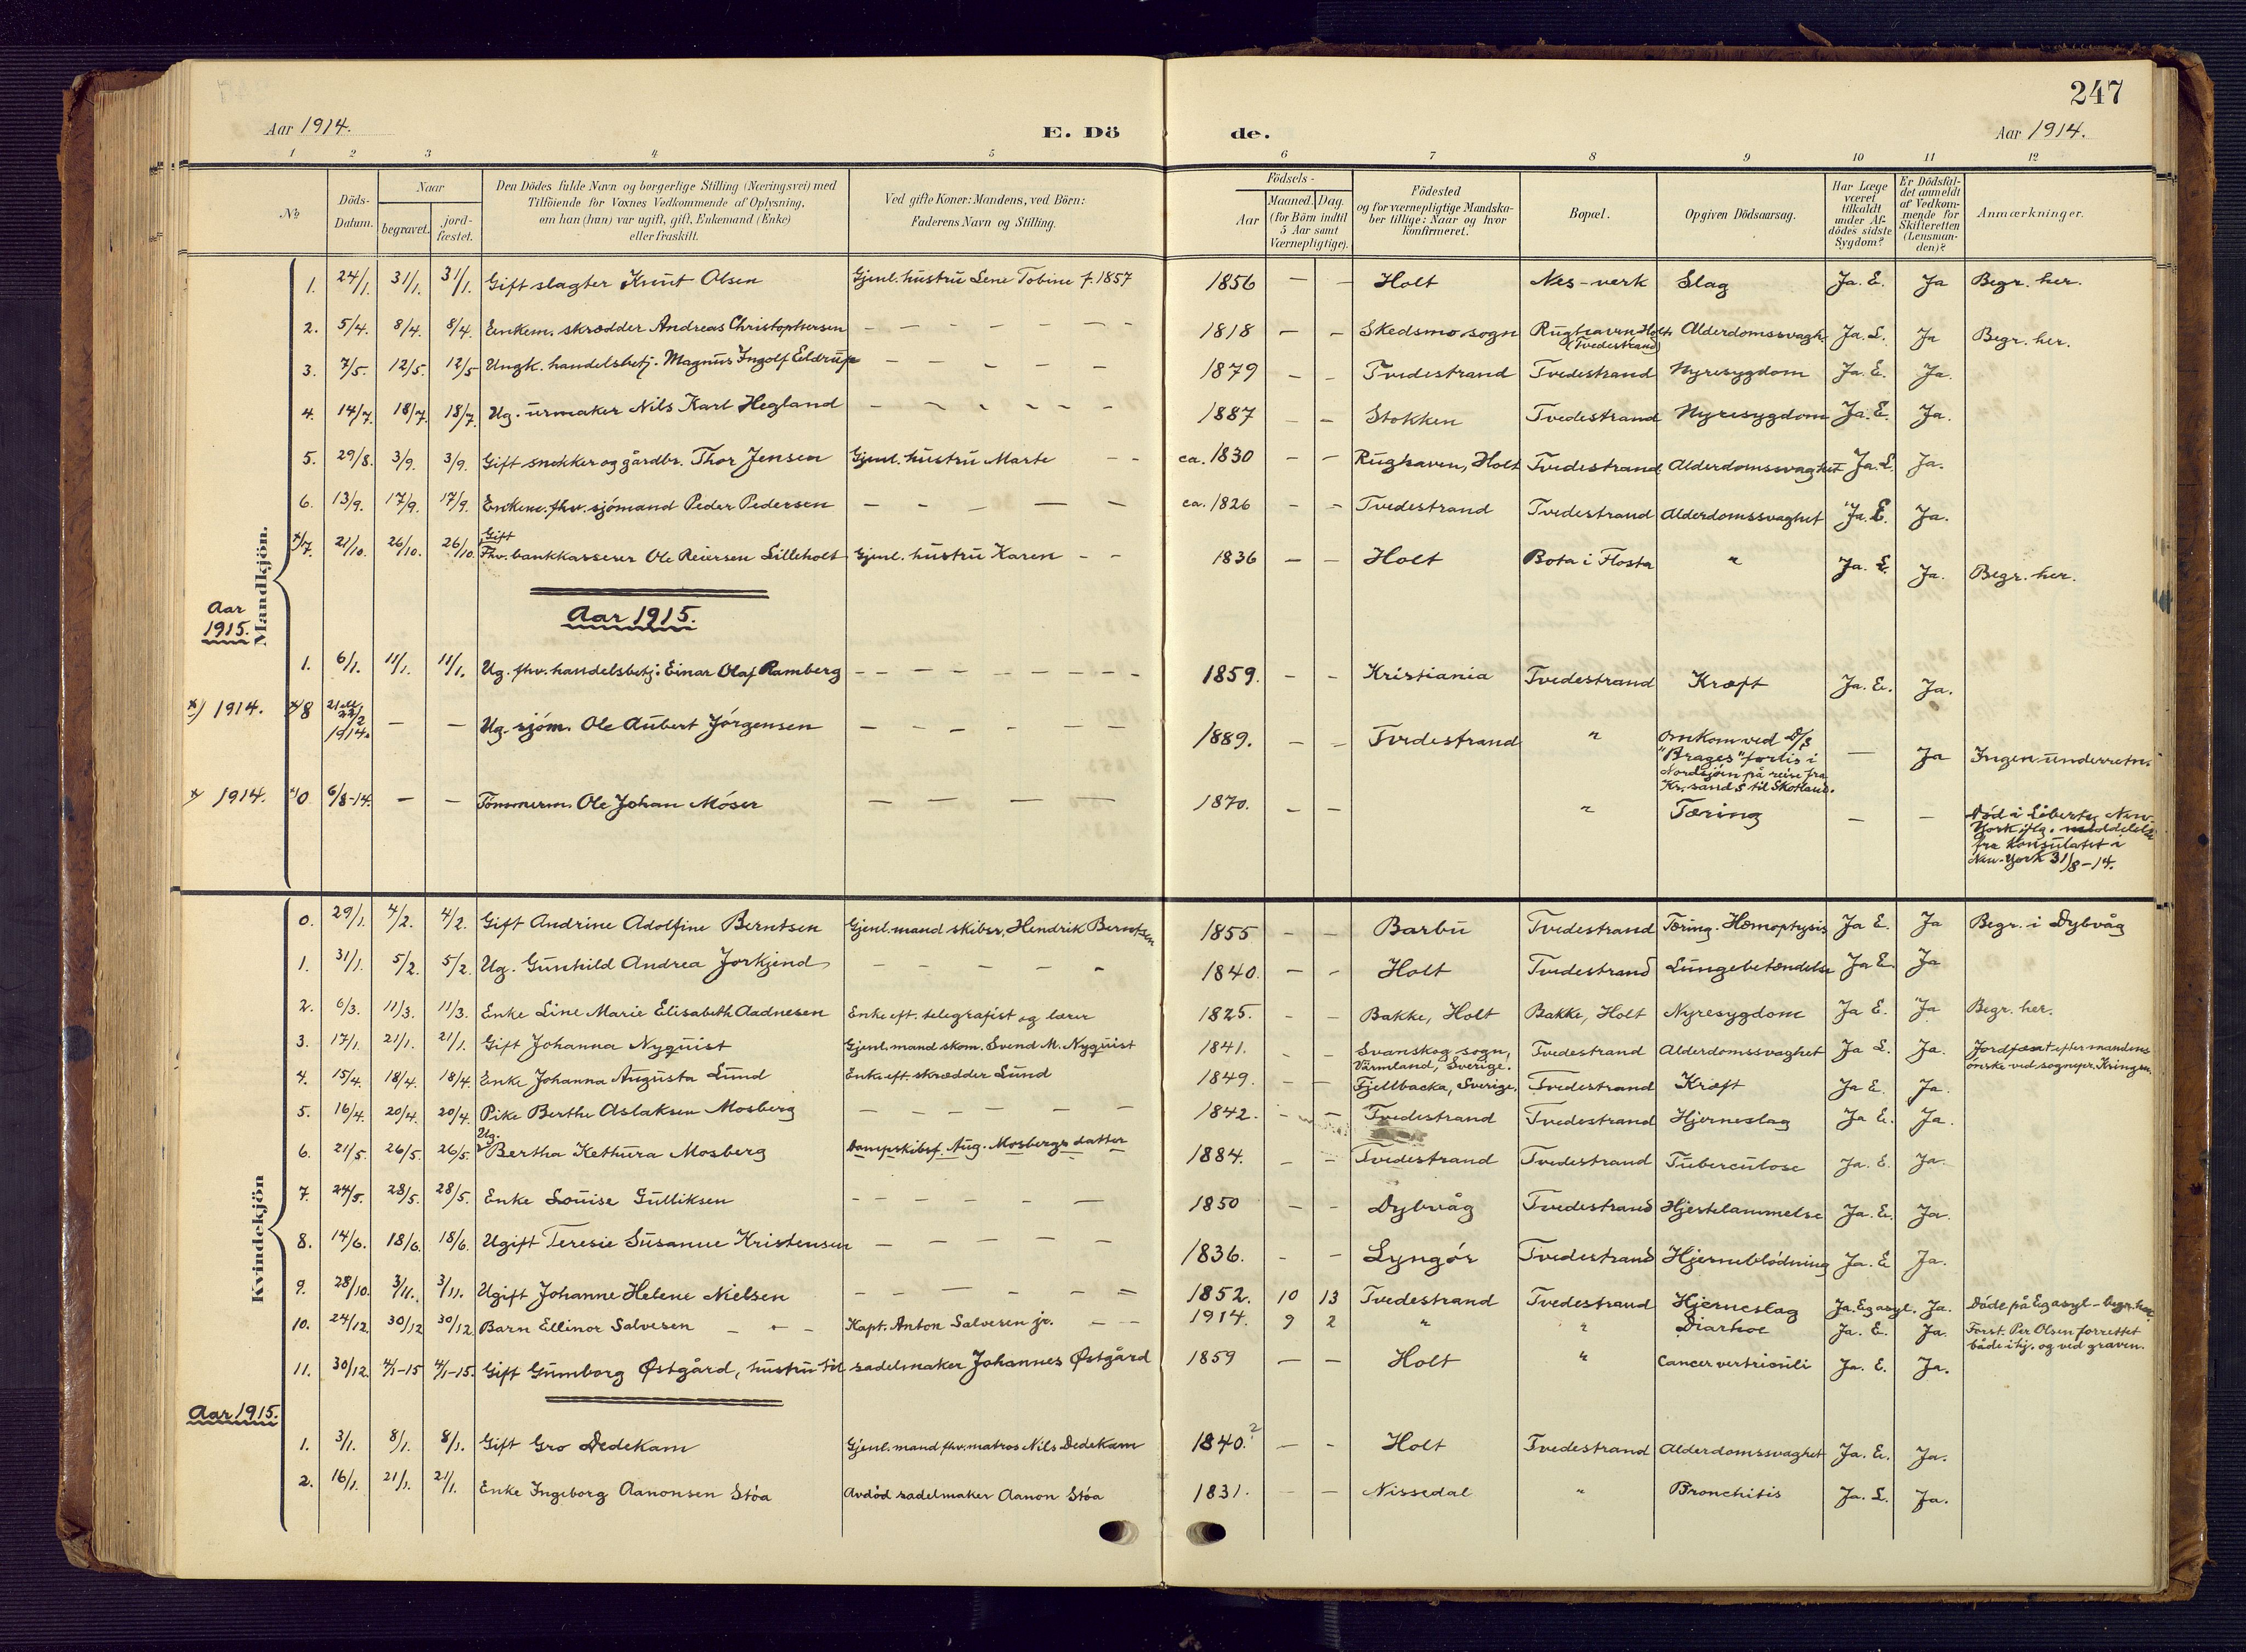 247
Aar 1914.
E. Dö de.
Aar 1914.
1 2 3 4 5 6 7 8 9 10 11 12
№
Döds-Datum.
Naar
begravet.
jordfæstet.
Den Dödes fulde Navn og borgerlige Stilling (Næringsvei) med
Tilföiende for Voxnes Vedkommende af Oplysning,
om han (hun) var ugift, gift, Enkemand (Enke)
eller fraskilt.
Ved gifte Koner: Mandens, ved Börn:
Faderens Navn og Stilling.
Födsels-
Aar
Maaned. Dag.
(for Börn indtil
5 Aar samt
Værnepligtige).
Födested
og for værnepligtige Mandska-
ber tillige: Naar og hvor
konfirmeret.
Bopæl.
Opgiven Dödsaarsag.
Har Læge
været
tilkaldt
under Af-
dödes sidste
Sygdom?
Er Dödsfal-
det anmeldt
af Vedkom-
mende for
Skifteretten
(Lensman-
den)?
Anmærkninger.
Mandkjön.
1. 24/1. 31/1. 31/1. Gift slagter Knut Olsen Gjenl. hustru Lene Tobine f. 1857 1856 — — Holt Nes-verk Slag Ja. E. Ja Begr. her.
2. 5/4. 8/4. 8/4. Enkem. skrædder Andreas Christophersen — — — 1818 — — Skedsmo sogn Rughaven Holt (Tvedestrand) Alderdomssvagh. Ja. E. Ja Begr. her.
3. 7/5. 12/5. 12/5 Ungk. handelsbetj. Magnus Ingolf Eeldrup — — — 1879 — — Tvedestrand Tvedestrand Nyresygdom Ja. E. Ja.
4. 14/7. 18/7. 18/7. Ug. urmaker Nils Karl Hegland — — — 1887 — — Stokken Tvedestrand Nyresygdom Ja. E. Ja.
5. 29/8. 3/9. 3/9. Gift snekker og gårdbr. Thor Jensen Gjenl. hustru Marte — — ca. 1830 — — Rughaven, Holt Tvedestrand Alderdomssvaghet Ja. E. Ja.
6. 13/9. 17/9. 17/9. Enkem. fhv. sjömand Peder Pedersen — — — ca. 1826 — — Tvedestrand Tvedestrand Alderdomssvaghet Ja. E. Ja.
Gift
x/7. 21/10. 26/10. 26/10. Fhv. bankkasserer Ole Reiersen Lilleholt Gjenl. hustru Karen — — 1836 — — Holt Bota i Flosta " Ja. E. Ja. Begr. her.
Aar 1915.
Aar
1915.
1. 6/1. 11/1. 11/1. Ug. fhv. handelsbetj. Einar Olaf Ramberg — — — 1859. — — Kristiania Tvedestrand Kræft Ja. E. Ja.
x) 1914. x/8 21 ell. 22/2 1914. — — Ug. sjöm. Ole Aubert Jörgensen — — — 1889. — — Tvedestrand " Omkom ved D/S
"Brages" forlis i
Nordsjöen på reise fra
Kr. sand S til Skotland. — Ja Ingen underretn.
x 1914. 0 6/8-14. — — Tömmerm. Ole Johan Möser — — — 1870. — — " Tæring — — Död i Liberty New-
York iflg. meddelelse
fra konsulatet i
New-York 31/8-14.
Kvindekjön
0. 29/1. 4/2. 4/2. Gift Andrine Adolfine Berntsen Gjenl. mand skibsr. Hendrik Berntsen 1855 — — Barbu Tvedestrand Tæring. Hæmoptysis Ja E. Ja Begr. i Dybvåg
1. 31/1. 5/2. 5/2. Ug. Gunhild Andrea Jorkjend — — — 1840. — — Holt Tvedestrand Lungebetændelse Ja E. Ja
2. 6/3. 11/3. 11/3. Enke Line Marie Elisabeth Aadnesen Enke eft. telegrafist og lærer 1825. — — Bakke, Holt Bakke, Holt Nyresygdom Ja E. Ja Begr. her.
3. 17/1. 21/1. 21/1. Gift Johanna Nyquist Gjenl. mand skom. Svend M. Nyquist 1841. — — Svanskog sogn,
Värmland, Sverige. Tvedestrand Alderdomssvaghet Ja E. Ja. Jordfæstet efter mandens
önske ved sognepr. Kringen.
4. 15/4. 18/4. 18/4. Enke Johanna Augusta Lund Enke eft. skrædder Lund 1849. — — Fjellbacka, Sverige. Tvedestrand Kræft Ja E. Ja.
5. 16/4. 20/4. 20/4. Pike Berthe Aslaksen Mosberg — — — 1842. — — Tvedestrand Tvedestrand Hjerneslag Ja E. Ja.
Ug.
6. 21/5. 26/5. 26/5. Bertha Kethura Mosberg Dampskibsf. Aug. Mosbergs datter 1884. — — Tvedestrand Tvedestrand Tuberculose Ja. E. Ja.
7. 24/5. 28/5. 28/5. Enke Louise Gulliksen — — — 1850 — — Dybvåg Tvedestrand Hjertelammelse Ja. E. Ja.
8. 14/6. 18/6. 18/6. Ugift Teresie Susanne Kristensen — — — 1836. — — Lyngör Tvedestrand Hjerneblödning Ja. E. Ja.
9. 28/10. 3/11. 3/11. Ugift Johanne Helene Nielsen — — — 1852. 10 13 Tvedestrand Tvedestrand Hjerneslag Ja. Eg asyl. Ja. Döde på Eg asyl - begr. her
10. 24/12. 30/12 30/12. Barn Ellinor Salvesen — — — Kapt. Anton Salvesen jr. — — 1914. 9 2 " " Diarhoe Ja. E. Ja. Forst. Per Olsen forrettet
både i hj. og ved graven.
11. 30/12. 4/1-15 4/1-15. Gift Gumborg Østgård, hustru til sadelmaker Johannes Østgård 1859 — — Holt " Cancer ventriculi Ja. E. Ja.
Aar 1915.
1. 3/1. 8/1. 8/1. Gift Gro Dedekam Gjenl. mand fhv. matros Nils Dedekam 1840.? — — Holt Tvedestrand Alderdomssvaghet Ja. E. Ja.
2. 16/1. 21/1. 21/1. Enke Ingeborg Aanonsen Stöa Avdöd sadelmaker Aanon Stöa 1831. — — Nissedal " Bronchitis Ja. E. Ja.